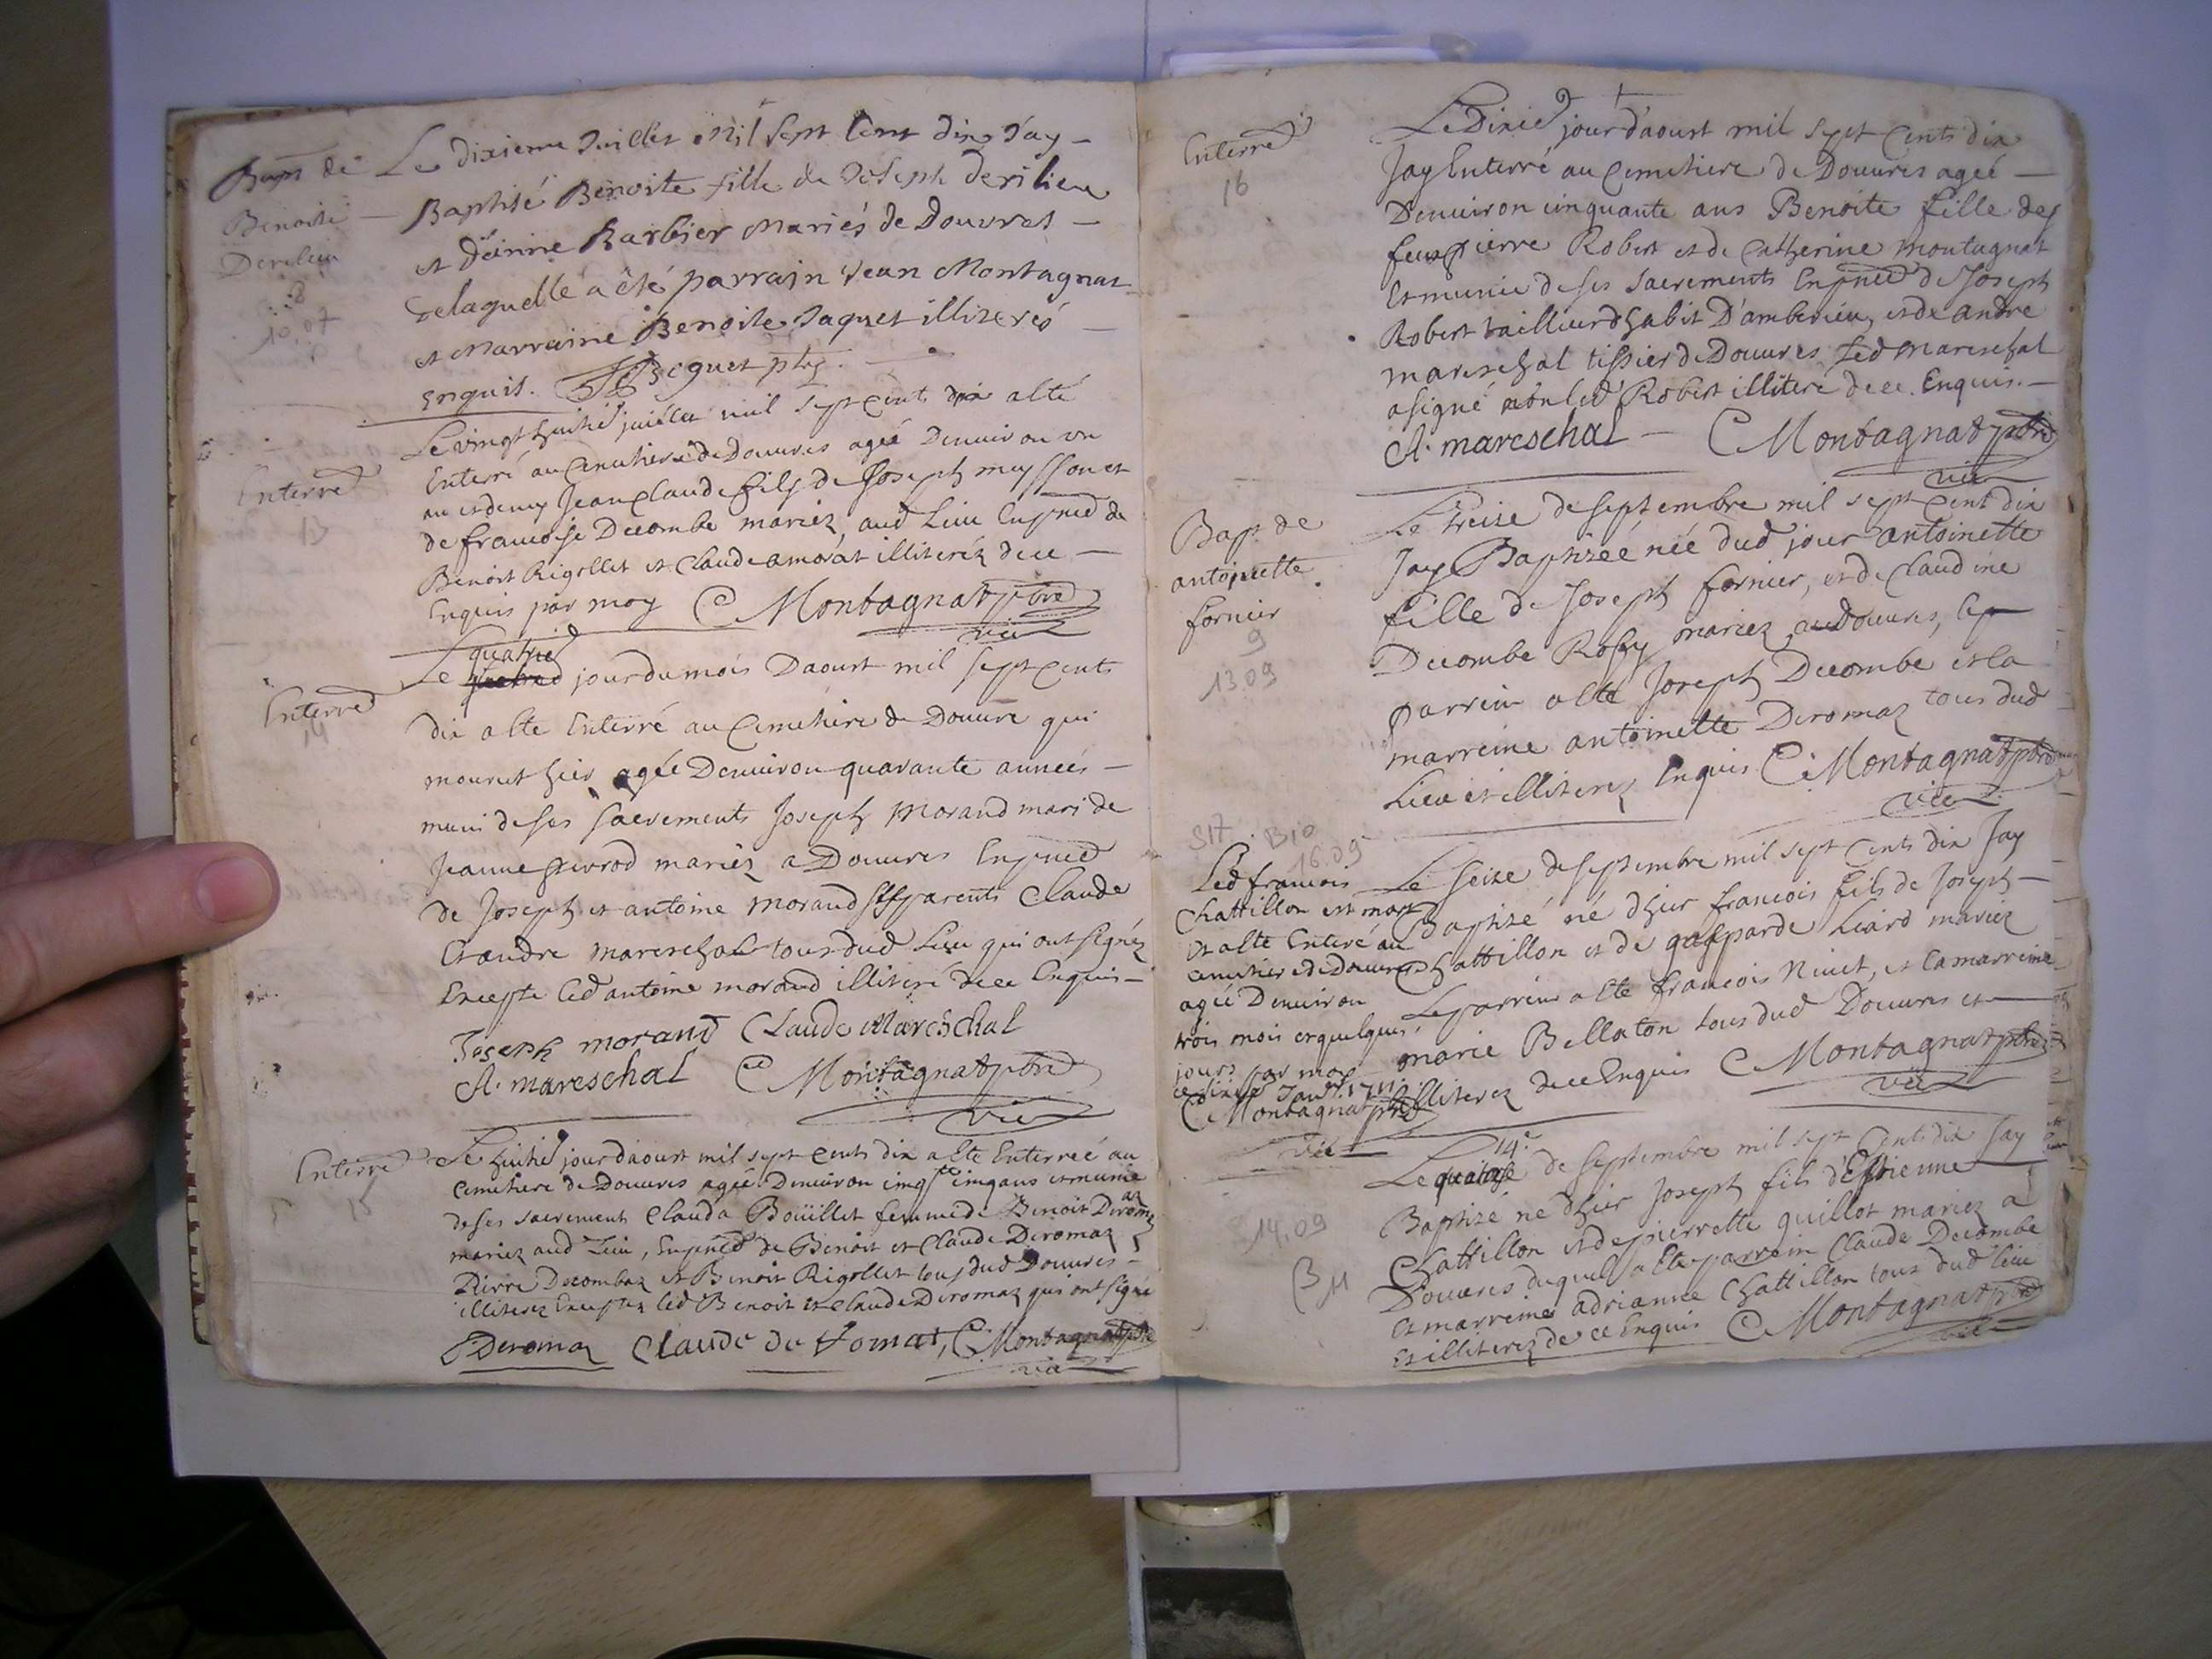 Bap de
Benoite
Derilieu
8
10.07
Le dixieme Juillet Mil Sept Cent dix J'ay
Baptisé Benoite fille de Joseph derilieu
et d'anne Barbier Mariés de Douvres
de laquelle a été parrain Jean Montagnat
et Marraine Benoite Jaquet illiterés
enquis. Becquet ptre.
Enterré
13
Le vingt huitie juiellet mil sept cents dix a esté
Enterré au Cemetiere de Douvres ageé Denviron un
an et demy Jean Claude fils de Joseph meyssonet
de francoise Decombe mariez aud Lieu En pnce de
Benoit Rigollet et Claude amorat illiteréz de ce
Enquis par moy C Montagnat ptre
vic
Enterré
14
quatrie
Le jour du mois Daoust mil sept cents
dix a esté Enterré au Cemetiere de Douvre qui
mourut hier agée Denviron quarante années
muni de ses sacrements Joseph Morand mari de
Jeanne Pivrod mariéz a Douvres En pnce
de Joseph et antoine morand ses parents Claude
Et andre mareschal tous dud Lieu qui ont signéz
Excepte led antoine morand illiteré de ce Enquis
Joseph morand Claude Mareschal
A. mareschal C Montagnat ptre
vic
Enterré
15
Le huitie jour daoust mil sept cents dix a esté Enterreé au
Cemetiere de Douvres agée Denviron cinqte cinq ans et munie
de ses sacrements Clauda Boüillet femme de Benoit Deromaz
mariez aud Lieu, En pnce de Benoit et Claude Deromaz
Pierre Decombaz et Benoit Rigollet tous dud Douvres
illiterez Exceptez led Benoit et Claude Deromaz qui ont signé
Deromaz Claude de Romat, C Montagnat ptre
vic
Enterré
16
Le Dixie jour d'aoust mil sept cents dix
Jay Enterré au Cemetiere de Douvres ageé
Denviron cinquante ans Benoite fille des
feus pierre Robert et de Catherine montagnat
Et munie de ses Sacrements En pnce de Joseph
Robert tailleur habit D'amberieu, et de andre
mareschal tissier de Douvres led mareschal
a signé non led Robert illiteré de ce Enquis.
A. mareschal C Montagnat ptre
vic
Bap de
antoinette
fornier
9
13.09
Le treize de septembre mil sept Cent dix
Jay Baptizeé née dud jour antoinette
fille de Joseph fornier, et de Claudine
Decombe Rosy mariez aud Douvres, le
parrein a esté Joseph Decombe et la
marreine antoinette Deromaz tous dud
Lieu et illiterez Enquis C Montagnat ptre
vic
S17 B10
16.09
Led francois
Chattillon est mort
Et a esté Enterré au
cemetiere de Douvres
agée Denviron
trois mois et quelques
jours par moy
ce dixie Janv 1711
C Montagnat ptre
vic
Le seize de septembre mil sept Cents dix Jay
Baptizé né d'hier francois fils de Joseph
Chattillon et de gasparde Liard mariez
Le parrein a esté francois Nivet, et la marreine
marie Bellaton tous dud Douvres et
illiterez de ce Enquis C Montagnat ptre
vic
14.09
B11
14e
Le quatorze de Septembre mil sept Cents dix Jay
Baptizé né d'hier Joseph fils d'Estienne
Chattillon et de pierrette quillot mariez a
Douvres duquel a esté parrein Claude Decombe
Et marreine adrianne Chattillon tous dud lieu
Et illiterez de ce Enquis C Montagnat ptre
vic